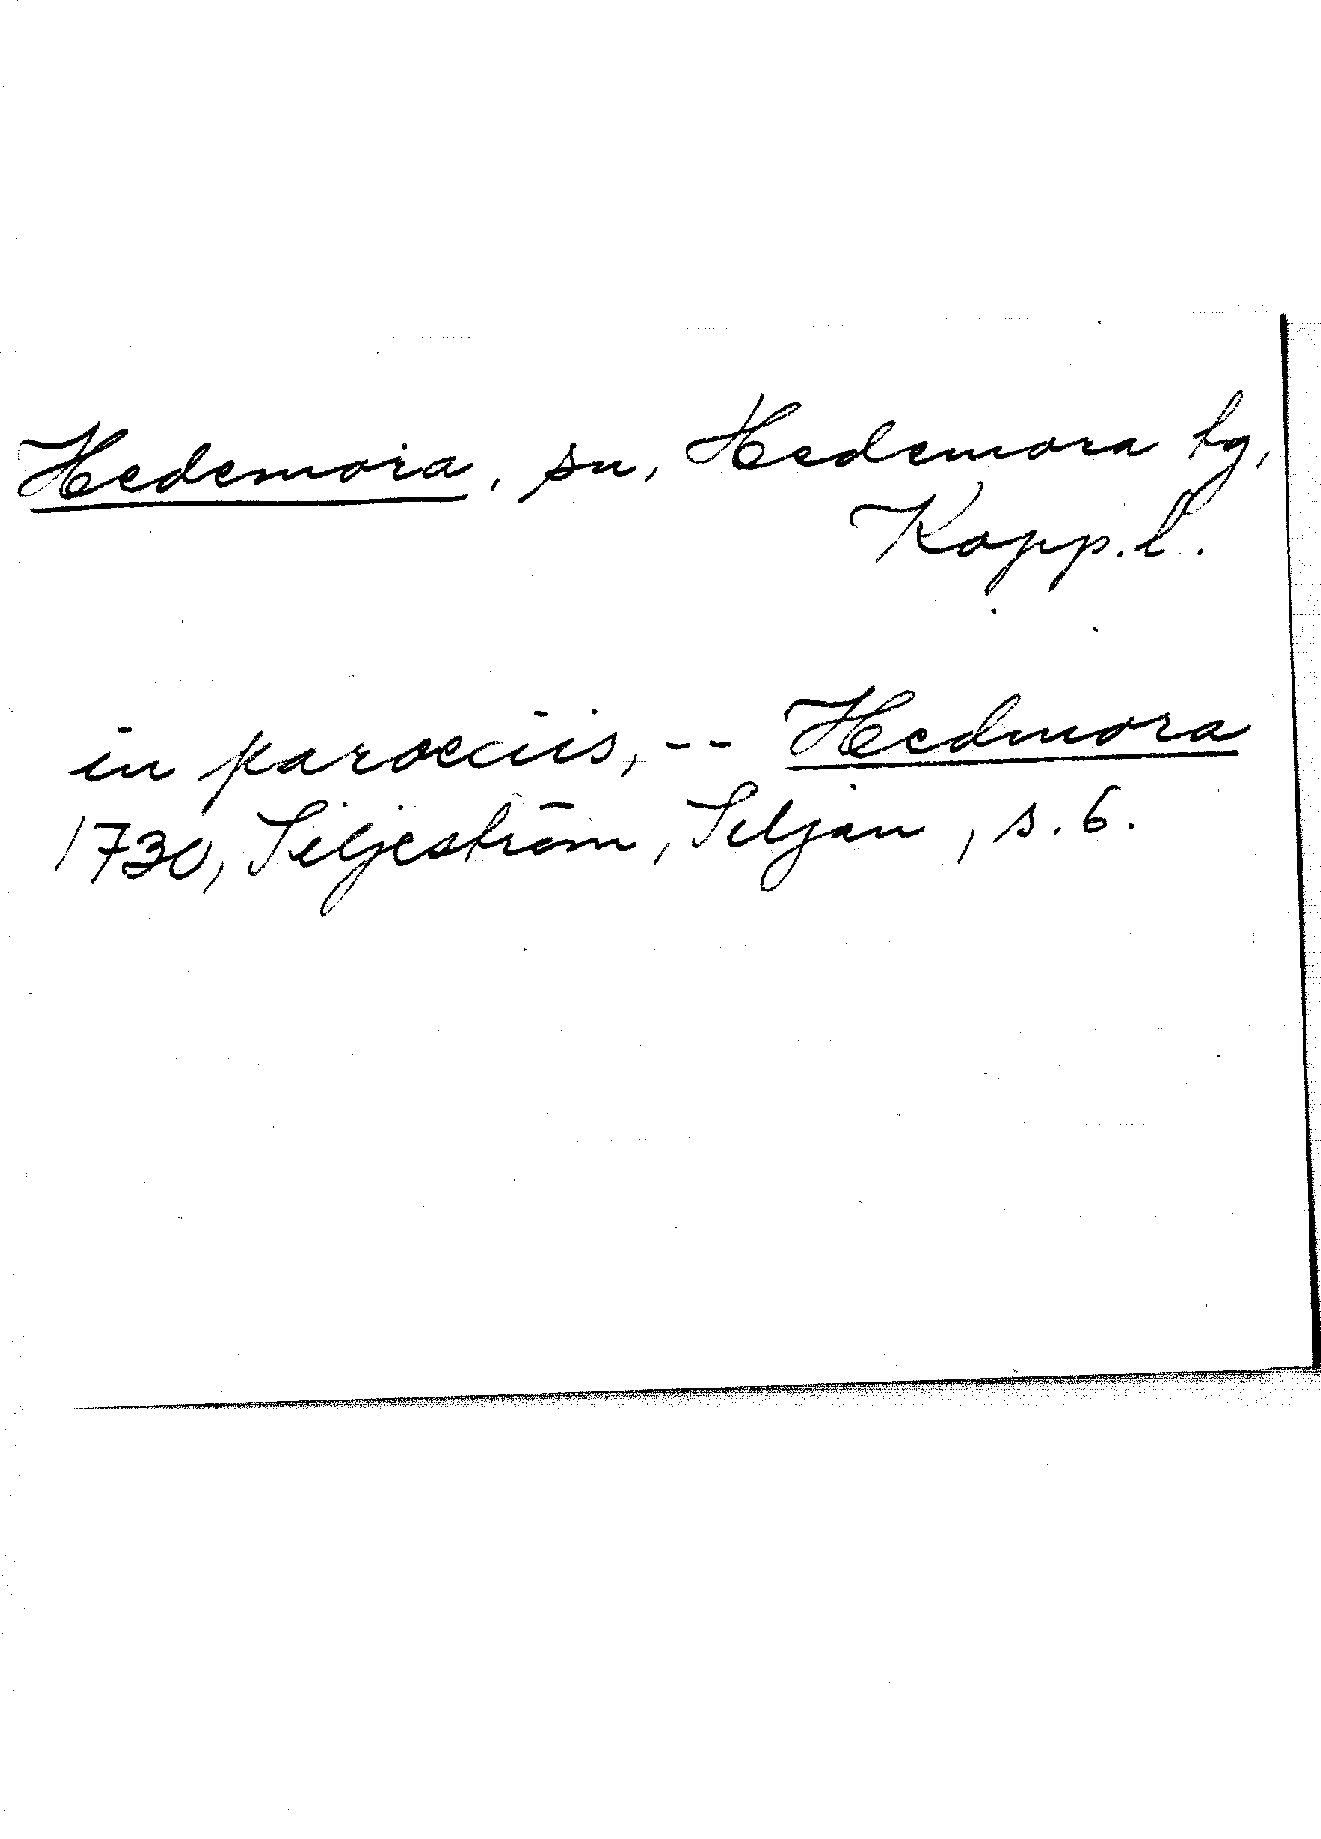 Hedemora, sn, Hedemora tg,
Kopp.l.
in paroeciis, -- Hedmora
1730, Siljeström, Siljan, s. 6.